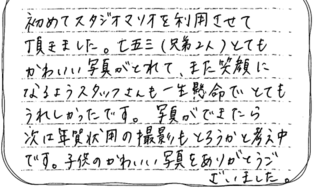 初めてスタジオマリオを利用させて
頂きました。七五三(兄弟2人)とても
かわいい写真がとれて、また笑顔に
なるようスタッフさんも一生懸命でとても
うれしかったです。写真ができたら
次は年賀状用の撮影もとろうかと考え中
です。子供のかわいい写真をありがとうご
ざいました。